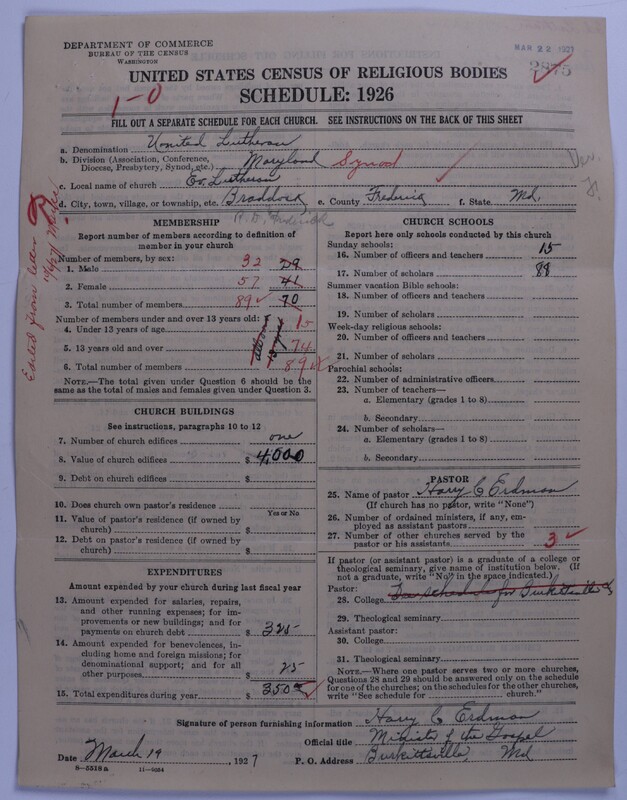 DEPARTMENT OF COMMERCE
BUREAU OF THE CENSUS
WASHINGTON
MAR 22 1927
2875
UNITED STATES CENSUS OF RELIGIOUS BODIES
SCHEDULE: 1926
1-0
FILL OUT A SEPARATE SCHEDULE FOR EACH CHURCH. SEE INSTRUCTIONS ON THE BACK OF THIS SHEET
a. Denomination United Lutheran
b. Division (Association, Conference, Diocese, Presbytery, Synod, etc.) Maryland Synod
c. Local name of church Ev. Lutheran
d. City, town, village, or township, etc. Braddock e. County Frederick f. State Md.
R.D. Frederick
Edited from letter
MEMBERSHIP
Report number of members according to definition of member in your church
Number of members, by sex:
1. Male 32 29
2. Female 57 41
3. Total number of members 89 70
Number of members under and over 13 years old:
4. Under 13 years of age 15
5. 13 years old and over 74
6. Total number of members 89
NOTE.—The total given under Question 6 should be the same as the total of males and females given under Question 3.
CHURCH BUILDINGS
See instructions, paragraphs 10 to 12
7. Number of church edifices one
8. Value of church edifices $ 4,000
9. Debt on church edifices $
10. Does church own pastor's residence
Yes or No
11. Value of pastor's residence (if owned by church) $
12. Debt on pastor's residence (if owned by church) $
EXPENDITURES
Amount expended by your church during last fiscal year
13. Amount expended for salaries, repairs, and other running expenses; for improvements or new buildings; and for payments on church debt $ 325
14. Amount expended for benevolences, including home and foreign missions; for denominational support; and for all other purposes $ 25
15. Total expenditures during year $ 350
CHURCH SCHOOLS
Report here only schools conducted by this church
Sunday schools:
16. Number of officers and teachers 15
17. Number of scholars 88
Summer vacation Bible schools:
18. Number of officers and teachers
19. Number of scholars
Week-day religious schools:
20. Number of officers and teachers
21. Number of scholars
Parochial schools:
22. Number of administrative officers
23. Number of teachers—
a. Elementary (grades 1 to 8)
b. Secondary
24. Number of scholars—
a. Elementary (grades 1 to 8)
b. Secondary
PASTOR
25. Name of pastor Harry C Erdman
(If church has no pastor, write "None")
26. Number of ordained ministers, if any, employed as assistant pastors
27. Number of other churches served by the pastor or his assistants 3
If pastor (or assistant pastor) is a graduate of a college or theological seminary, give name of institution below. (If not a graduate, write "No" in the space indicated.)
Pastor:
28. College See sched. for Burkittsville
29. Theological seminary
Assistant pastor:
30. College
31. Theological seminary
NOTE.—Where one pastor serves two or more churches, Questions 28 and 29 should be answered only on the schedule for one of the churches; on the schedules for the other churches, write "See schedule for church."
Signature of person furnishing information Harry C Erdman
Official title Minister of the Gospel
Date March 19, 1927 P. O. Address Burkittsville Md
8-5518a 11-9054